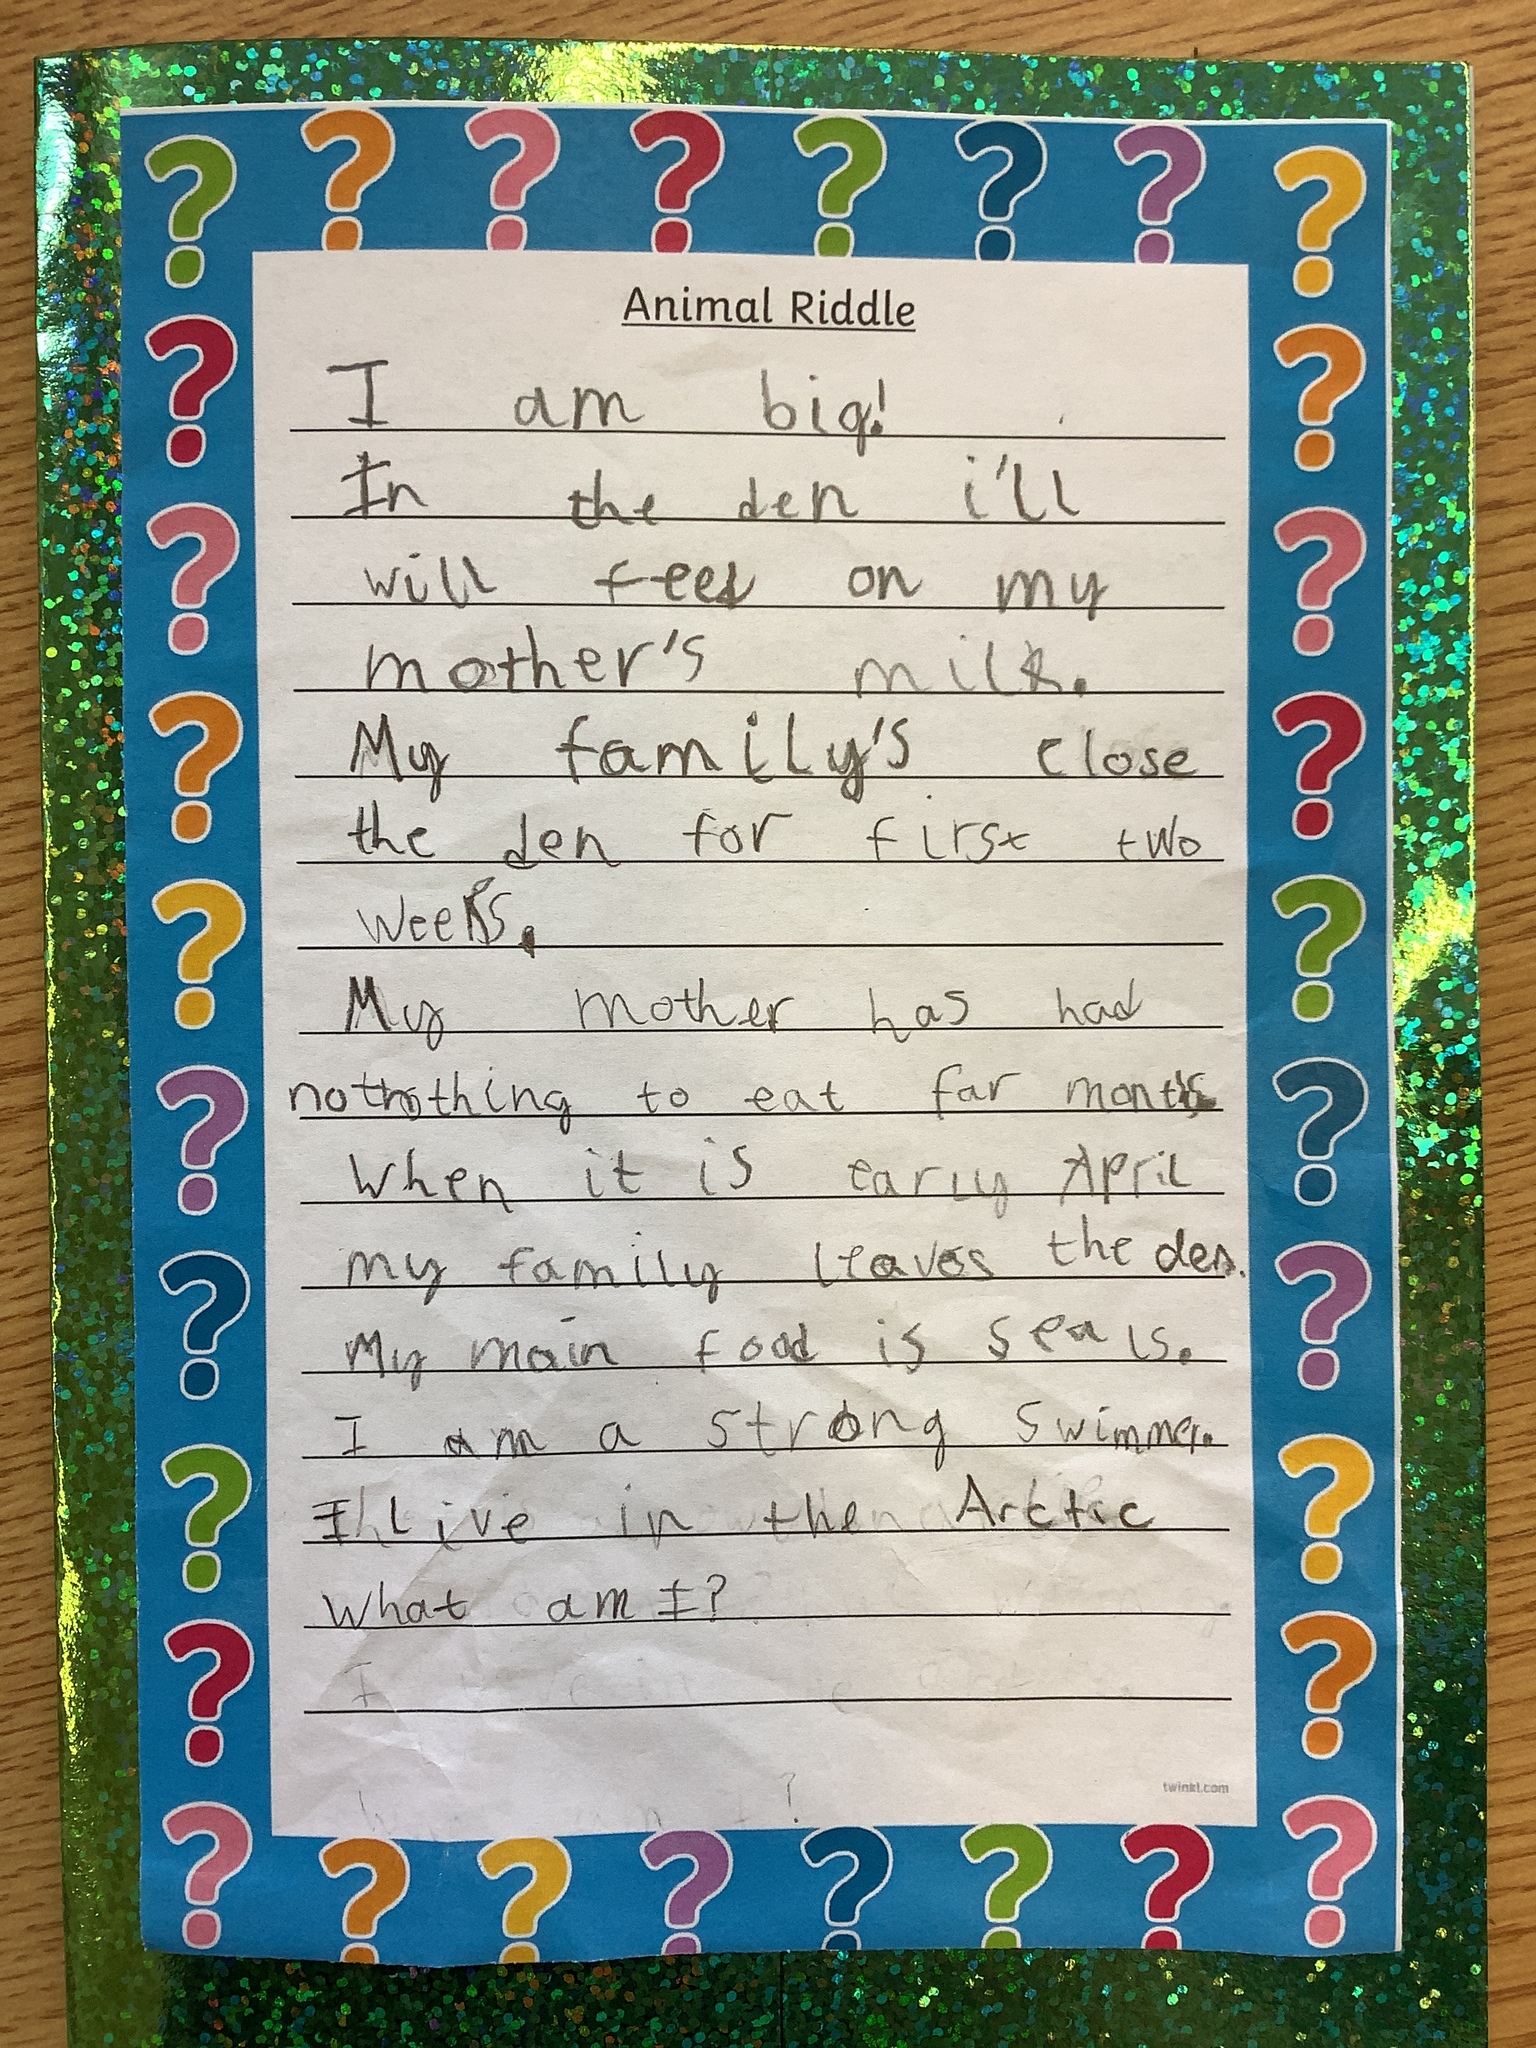 Animal Riddle
I am big!
In the den i'll
will feed on my
mother's milk.
My family's close
the den for first two
weeks.
My mother has had
nothothing to eat for months
When it is early April
my family leaves the den.
My main food is seals.
I am a strong swimmer.
I live in the Arctic
What am I?
twinkl.com